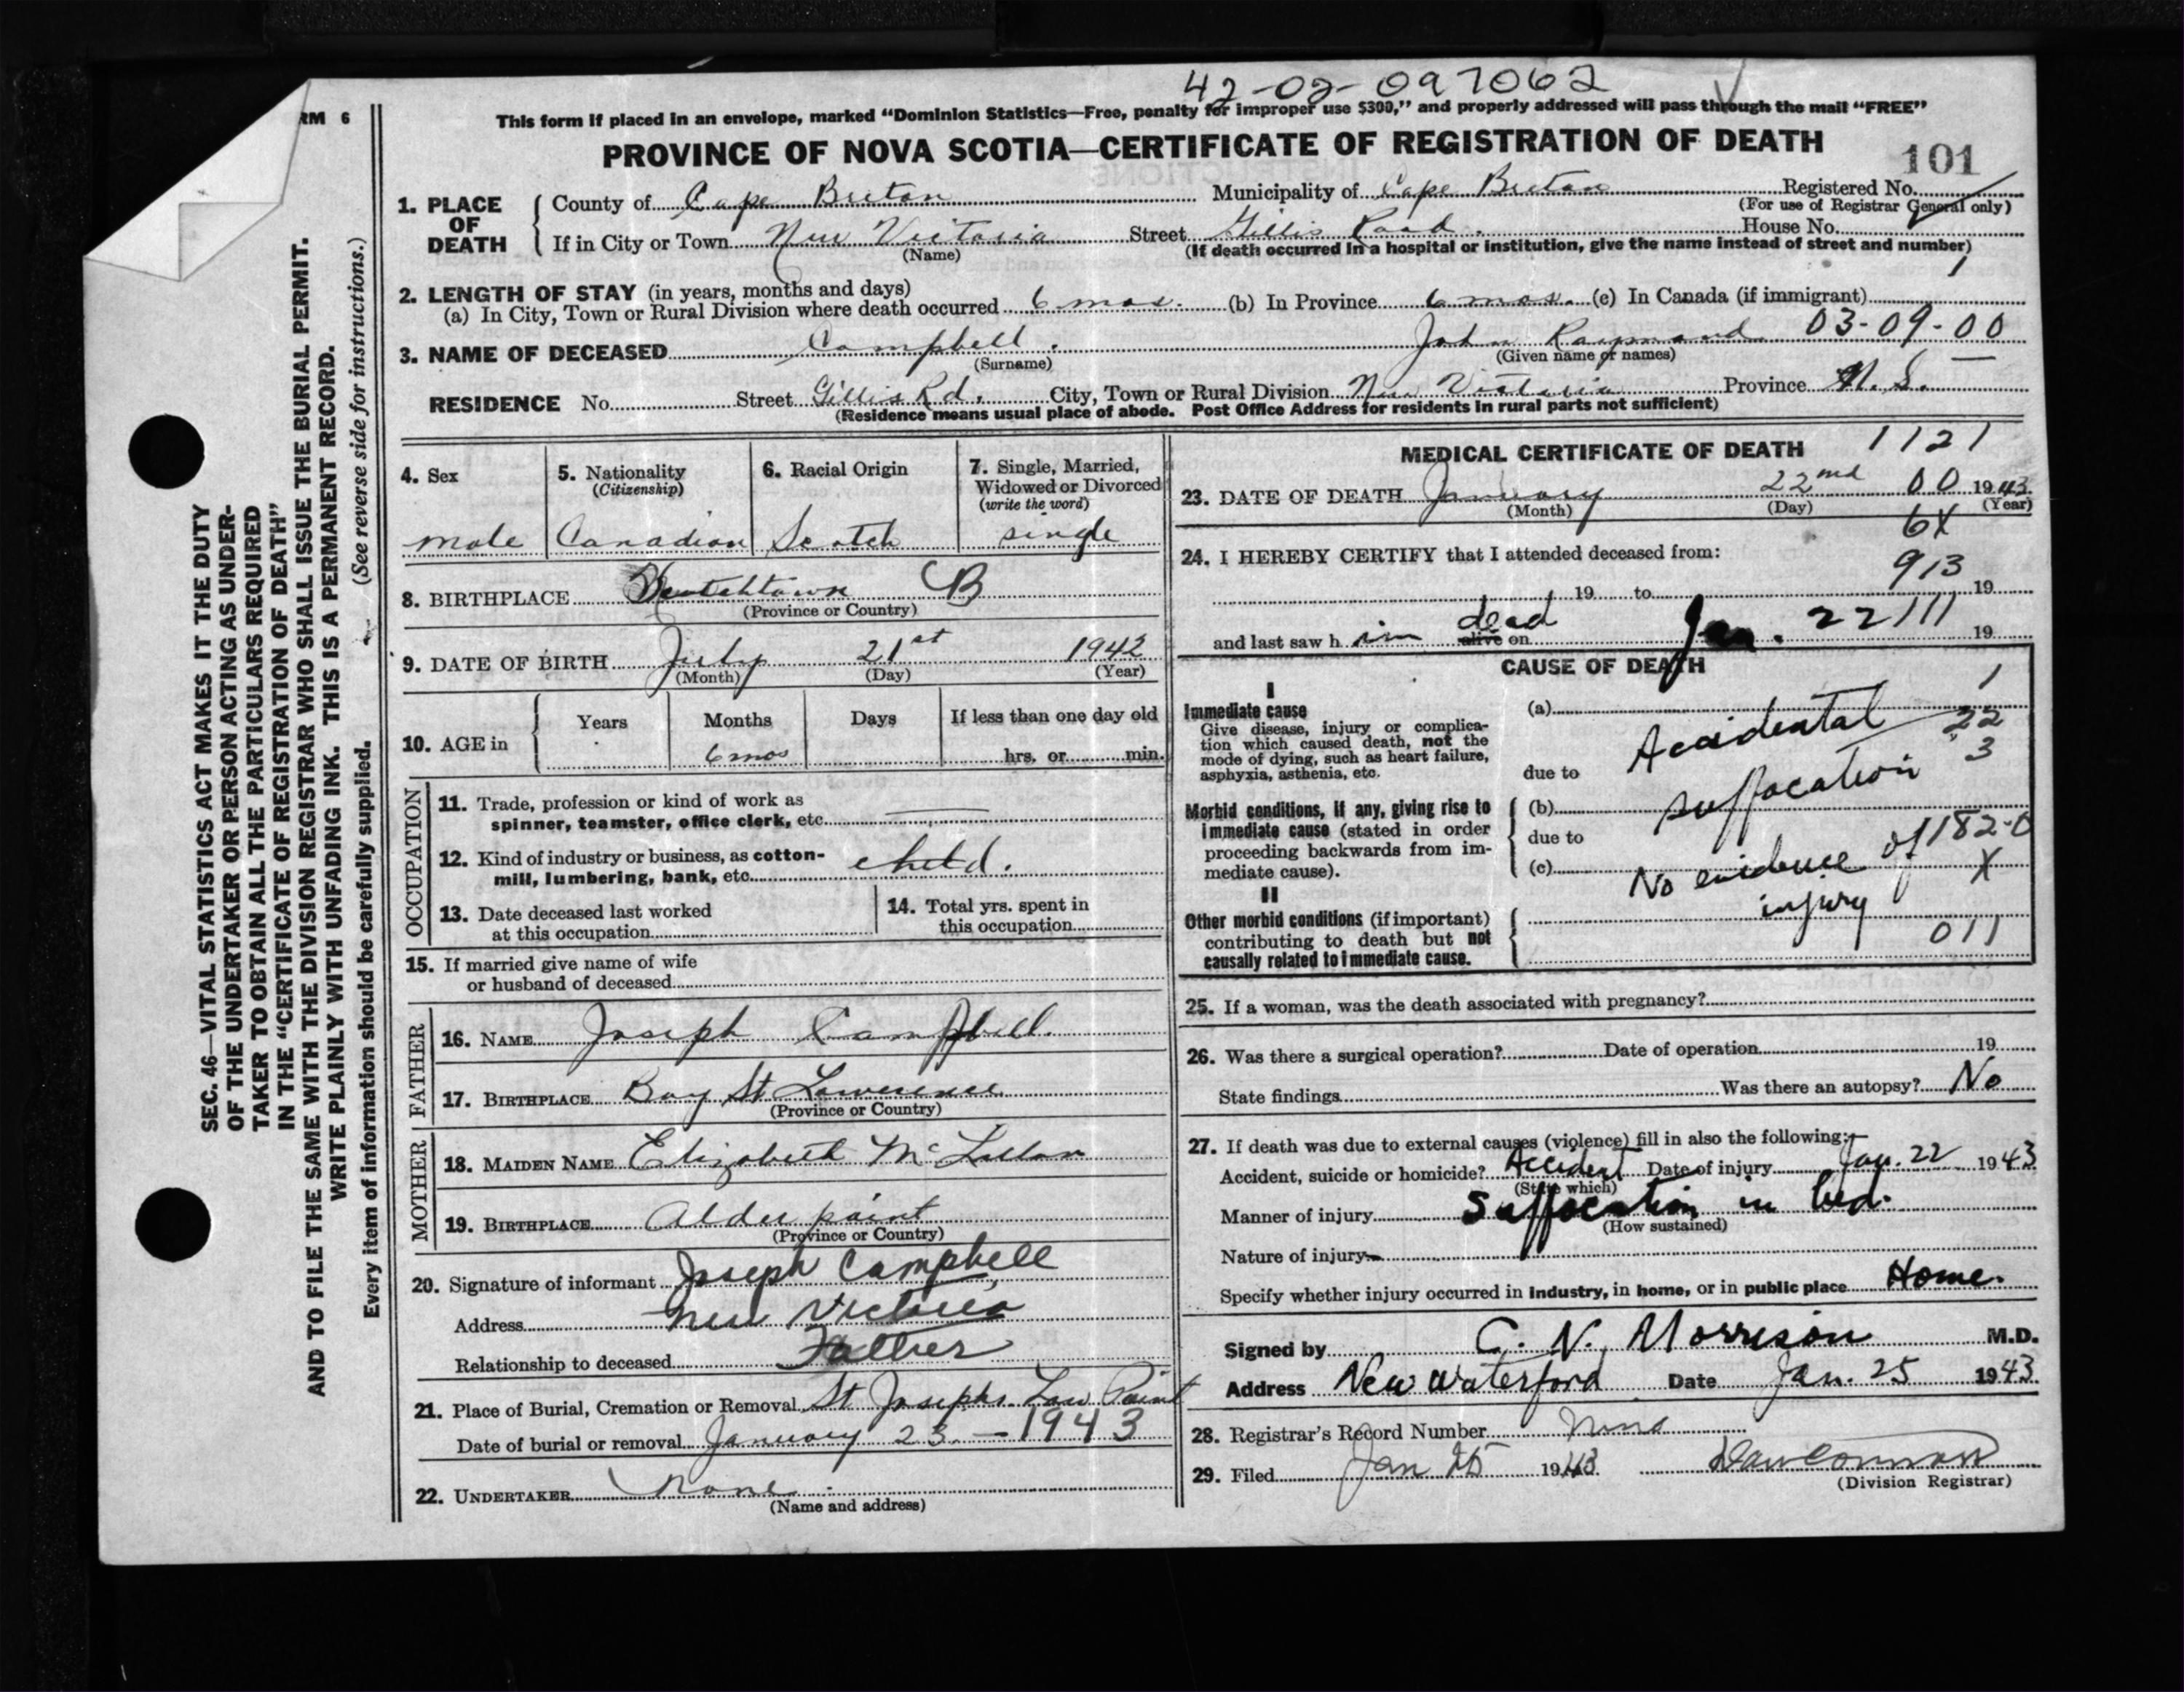 42-02-097062
RM 6
This form if placed in an envelope, marked "Dominion Statistics—Free, penalty for improper use $300," and properly addressed will pass through the mail "FREE"
PROVINCE OF NOVA SCOTIA—CERTIFICATE OF REGISTRATION OF DEATH
101
1. PLACE OF DEATH
County of Cape Breton Municipality of Cape Breton Registered No.
(For use of Registrar General only)
If in City or Town New Victoria Street Gillis Road. House No.
(Name) (If death occurred in a hospital or institution, give the name instead of street and number)
1
2. LENGTH OF STAY (in years, months and days)
(a) In City, Town or Rural Division where death occurred 6 mos. (b) In Province 6 mos. (c) In Canada (if immigrant)
3. NAME OF DECEASED Campbell. John Raymond 03-09-00
(Surname) (Given name or names)
RESIDENCE No. Street Gillis Rd. City, Town or Rural Division New Victoria Province N.S.
(Residence means usual place of abode. Post Office Address for residents in rural parts not sufficient)
4. Sex
male
5. Nationality
(Citizenship)
Canadian
6. Racial Origin
Scotch
7. Single, Married,
Widowed or Divorced
(write the word)
single
8. BIRTHPLACE CB
(Province or Country)
9. DATE OF BIRTH July 21st 1942
(Month) (Day) (Year)
10. AGE in
Years Months Days If less than one day old
6 mos hrs. or min.
OCCUPATION
11. Trade, profession or kind of work as
spinner, teamster, office clerk, etc.
12. Kind of industry or business, as cotton-
mill, lumbering, bank, etc. child.
13. Date deceased last worked
at this occupation
14. Total yrs. spent in
this occupation
15. If married give name of wife
or husband of deceased
FATHER
16. NAME Joseph Campbell.
17. BIRTHPLACE Bay St Lawerence
(Province or Country)
MOTHER
18. MAIDEN NAME Elizabeth
19. BIRTHPLACE Alder point
(Province or Country)
20. Signature of informant Joseph Campbell
Address New Victoria
Relationship to deceased Father
21. Place of Burial, Cremation or Removal St Josephs. Low Point
Date of burial or removal January 23 - 1943
22. UNDERTAKER None.
(Name and address)
MEDICAL CERTIFICATE OF DEATH 1121
23. DATE OF DEATH January 22nd 00 1943
(Month) (Day) (Year)
6X
24. I HEREBY CERTIFY that I attended deceased from:
913
19 to 19
and last saw h im alive dead on Jan. 22 111 19
CAUSE OF DEATH
I
Immediate cause
Give disease, injury or complica-
tion which caused death, not the
mode of dying, such as heart failure,
asphyxia, asthenia, etc.
(a)
due to
Accidental
suffocation
1
22
3
Morbid conditions, if any, giving rise to
immediate cause (stated in order
proceeding backwards from im-
mediate cause).
(b)
due to
(c)
No evidence of
injury
182-0
X
011
II
Other morbid conditions (if important)
contributing to death but not
causally related to immediate cause.
25. If a woman, was the death associated with pregnancy?
26. Was there a surgical operation? Date of operation 19
State findings Was there an autopsy? No
27. If death was due to external causes (violence) fill in also the following:
Accident, suicide or homicide? Accident Date of injury Jan. 22 1943
(State which)
Manner of injury Suffocation in bed.
(How sustained)
Nature of injury
Specify whether injury occurred in industry, in home, or in public place Home.
Signed by C. N. Morrison M.D.
Address New Waterford Date Jan. 25 1943
28. Registrar's Record Number Nine
29. Filed Jan 25 1943
(Division Registrar)
SEC. 46—VITAL STATISTICS ACT MAKES IT THE DUTY
OF THE UNDERTAKER OR PERSON ACTING AS UNDER-
TAKER TO OBTAIN ALL THE PARTICULARS REQUIRED
IN THE "CERTIFICATE OF REGISTRATION OF DEATH"
AND TO FILE THE SAME WITH THE DIVISION REGISTRAR WHO SHALL ISSUE THE BURIAL PERMIT.
WRITE PLAINLY WITH UNFADING INK. THIS IS A PERMANENT RECORD.
Every item of information should be carefully supplied. (See reverse side for instructions.)